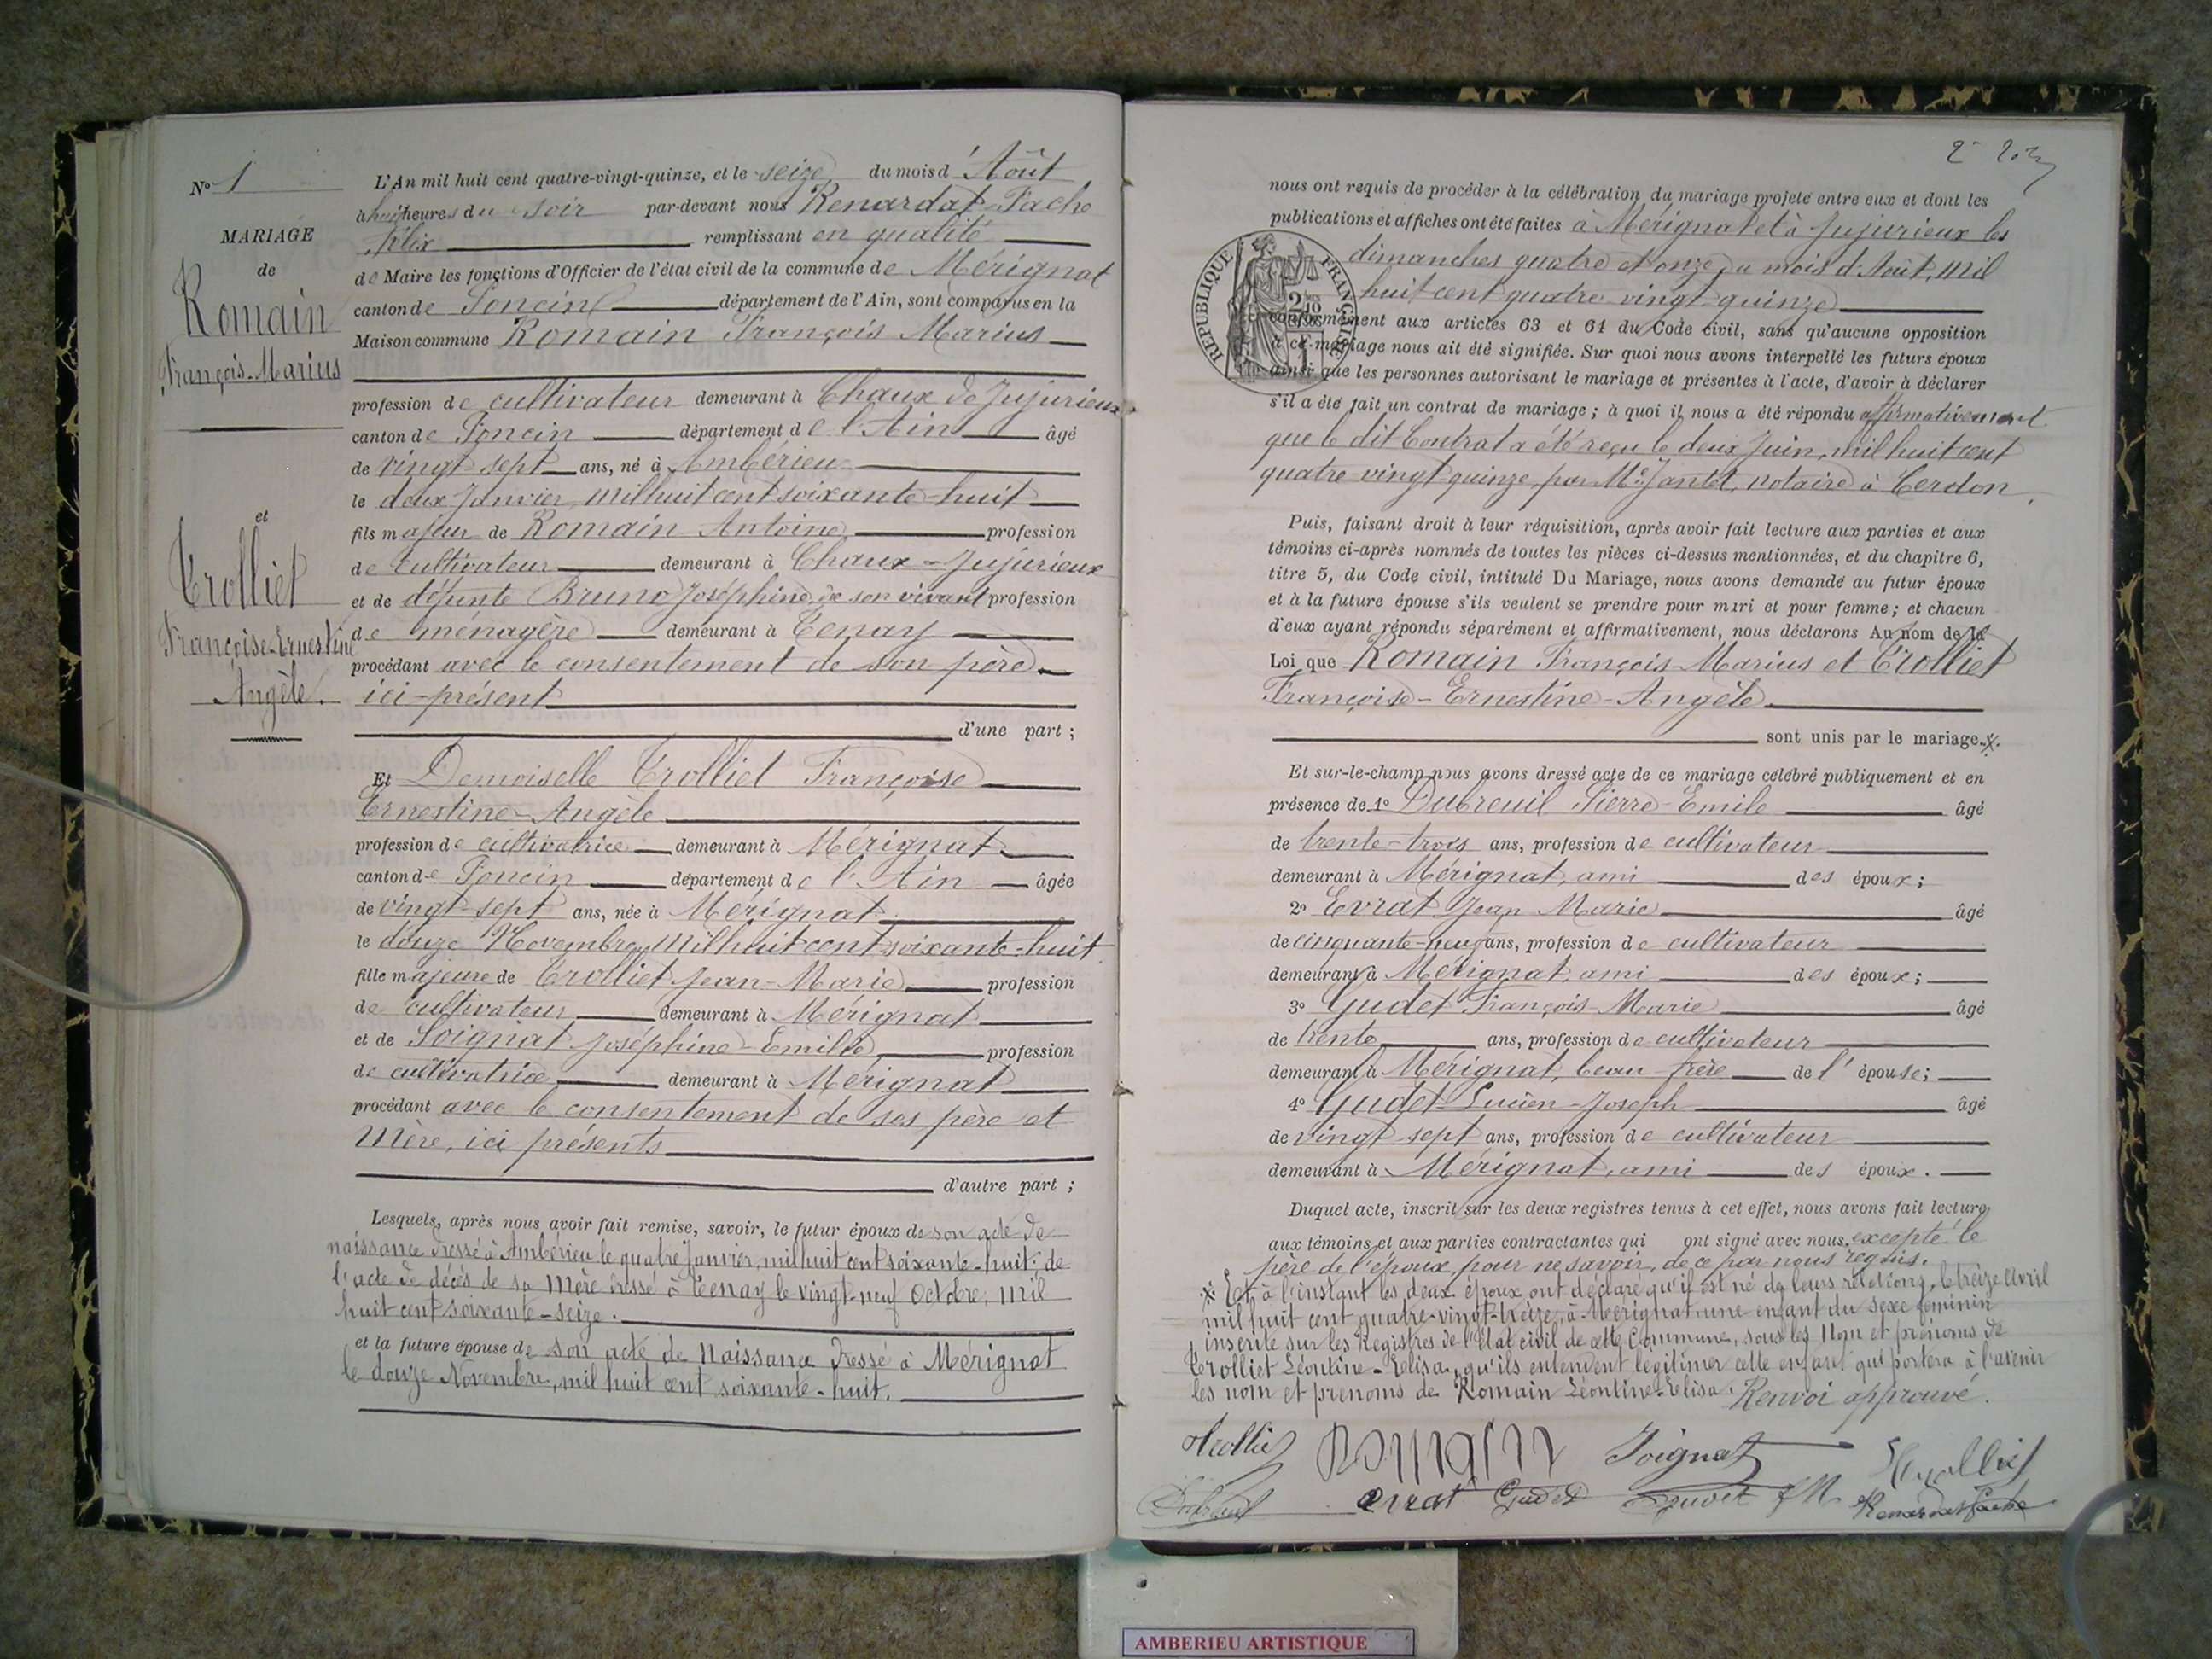 N° 1
MARIAGE
de
Romain
François-Marius
et
Trolliet
Françoise-Ernestine
Angèle.
L'An mil huit cent quatre-vingt-quinze, et le seize du mois d'Août
à huit heures du soir par-devant nous Renardat-Fache
Félix remplissant en qualité
de Maire les fonctions d'Officier de l'état civil de la commune de Mérignat
canton de Poncin département de l'Ain, sont comparus en la
Maison commune Romain François Marius
profession de cultivateur demeurant à Chaux de Jujurieux
canton de Poncin département de l'Ain âgé
de vingt sept ans, né à Ambérieu
le deux Janvier, mil huit cent soixante-huit
fils majeur de Romain Antoine profession
de cultivateur demeurant à Chaux-Jujurieux
et de défunte Bruno Joséphine, de son vivant profession
de ménagère demeurant à Tenay
procédant avec le consentement de son père
ici-présent
d'une part ;
Et Demoiselle Trolliet Françoise
Ernestine-Angèle
profession de cultivatrice demeurant à Mérignat
canton de Poncin département de l'Ain âgée
de vingt-sept ans, née à Mérignat
le douze Novembre, mil huit cent soixante-huit
fille majeure de Trolliet Jean-Marie profession
de cultivateur demeurant à Mérignat
et de Soignat Joséphine-Emilie profession
de cultivatrice demeurant à Mérignat
procédant avec le consentement de ses père et
Mère, ici présents
d'autre part ;
Lesquels, après nous avoir fait remise, savoir, le futur époux de son acte de
naissance dressé à Ambérieu le quatre Janvier, mil huit cent soixante-huit ; de
l'acte de décès de sa Mère dressé à Tenay le vingt-neuf Octobre, mil
huit cent soixante-seize.
et la future épouse de son acte de Naissance dressé à Mérignat
le douze Novembre, mil huit cent soixante-huit.
nous ont requis de procéder à la célébration du mariage projeté entre eux et dont les
publications et affiches ont été faites à Mérignat et à Jujurieux les
dimanches quatre et onze du mois d'Août, mil
huit cent quatre vingt quinze
conformément aux articles 63 et 64 du Code civil, sans qu'aucune opposition
à ce mariage nous ait été signifiée. Sur quoi nous avons interpellé les futurs époux
ainsi que les personnes autorisant le mariage et présentes à l'acte, d'avoir à déclarer
s'il a été fait un contrat de mariage ; à quoi il nous a été répondu affirmativement
que le dit Contrat a été reçu le deux Juin, mil huit cent
quatre vingt quinze, par Me Jantet, notaire à Cerdon.
RÉPUBLIQUE FRANÇAISE
Puis, faisant droit à leur réquisition, après avoir fait lecture aux parties et aux
témoins ci-après nommés de toutes les pièces ci-dessus mentionnées, et du chapitre 6,
titre 5, du Code civil, intitulé Du Mariage, nous avons demandé au futur époux
et à la future épouse s'ils veulent se prendre pour mari et pour femme ; et chacun
d'eux ayant répondu séparément et affirmativement, nous déclarons Au nom de la
Loi que Romain François Marius et Trolliet
Françoise-Ernestine-Angèle
sont unis par le mariage.
Et sur-le-champ nous avons dressé acte de ce mariage célébré publiquement et en
présence de 1° Dubreuil Pierre-Emile âgé
de trente-trois ans, profession de cultivateur
demeurant à Mérignat, ami des époux ;
2° Evrat Jean Marie âgé
de cinquante-neuf ans, profession de cultivateur
demeurant à Mérignat, ami des époux ;
3° Gudet François-Marie âgé
de trente ans, profession de cultivateur
demeurant à Mérignat, beau-frère de l'épouse ;
4° Gudet Lucien-Joseph âgé
de vingt sept ans, profession de cultivateur
demeurant à Mérignat, ami des époux.
Duquel acte, inscrit sur les deux registres tenus à cet effet, nous avons fait lecture
aux témoins et aux parties contractantes qui ont signé avec nous, excepté le
père de l'époux, pour ne savoir, de ce par nous requis.
Et à l'instant les deux époux ont déclaré qu'il est né de leurs relations, le treize Avril
mil huit cent quatre-vingt-treize, à Mérignat une enfant du sexe féminin
inscrite sur les Registres de l'état civil de cette Commune, sous les Nom et prénoms de
Trolliet Léontine-Elisa, qu'ils entendent légitimer cette enfant qui portera à l'avenir
les nom et prénoms de Romain Léontine-Elisa. Renvoi approuvé.
Trolliet Romain Soignat Trolliet
Dubreuil Evrat Gudet Gudet F M Renardat Fache
AMBERIEU ARTISTIQUE